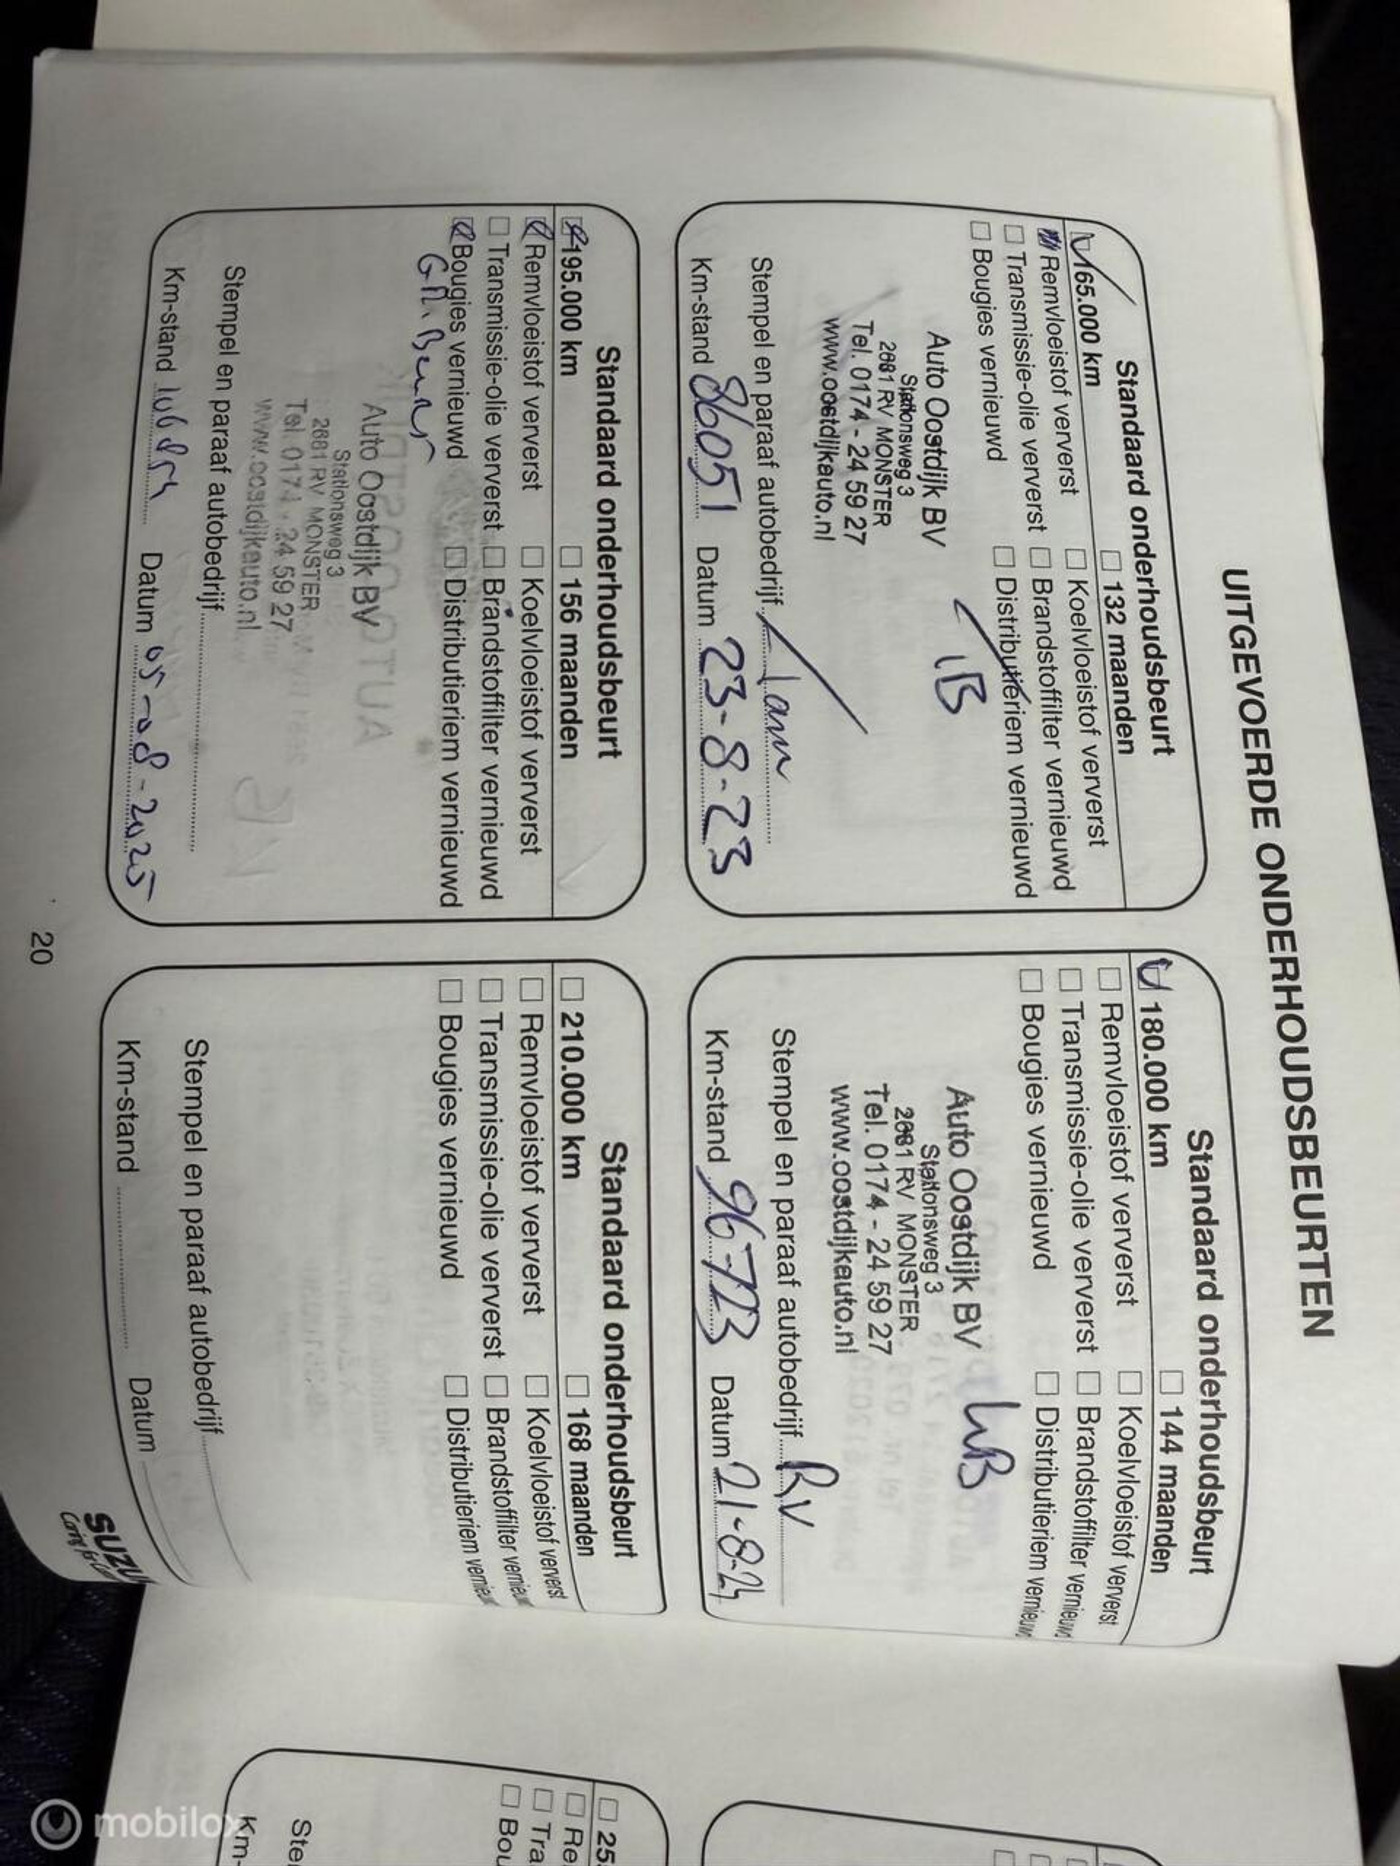 UITGEVOERDE ONDERHOUDSBEURTEN
Standaard onderhoudsbeurt
165.000 km 132 maanden
Remvloeistof ververst Koelvloeistof ververst
Transmissie-olie ververst Brandstoffilter vernieuwd
Bougies vernieuwd Distributieriem vernieuwd
Auto Oostdijk BV
Stationsweg 3
2681 RV MONSTER
Tel. 0174 - 24 59 27
www.oostdijkauto.nl
Stempel en paraaf autobedrijf
Km-stand 86051 Datum 23-8-23
Standaard onderhoudsbeurt
180.000 km 144 maanden
Remvloeistof ververst Koelvloeistof ververst
Transmissie-olie ververst Brandstoffilter vernieuwd
Bougies vernieuwd Distributieriem vernieuwd
Auto Oostdijk BV
Stationsweg 3
2681 RV MONSTER
Tel. 0174 - 24 59 27
www.oostdijkauto.nl
Stempel en paraaf autobedrijf RV
Km-stand 96723 Datum 21-8-24
Standaard onderhoudsbeurt
195.000 km 156 maanden
Remvloeistof ververst Koelvloeistof ververst
Transmissie-olie ververst Brandstoffilter vernieuwd
Bougies vernieuwd Distributieriem vernieuwd
Auto Oostdijk BV
Stationsweg 3
2681 RV MONSTER
Tel. 0174 - 24 59 27
www.oostdijkauto.nl
Stempel en paraaf autobedrijf
Km-stand Datum 05-08-2025
Standaard onderhoudsbeurt
210.000 km 168 maanden
Remvloeistof ververst Koelvloeistof ververst
Transmissie-olie ververst Brandstoffilter vernieuw
Bougies vernieuwd Distributieriem vernieu
Stempel en paraaf autobedrijf
Km-stand Datum
20
SUZU
Caring for
25
Re
Tra
Bou
Ste
Km-
mobilox